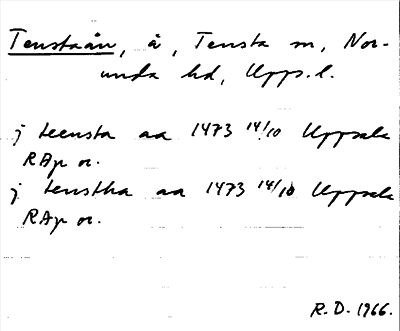 Tenstaån, å, Tensta sn, Nor-
unda hd, Upps. l.
j teensta aa 1473 14/10 Uppsala
RAp or.
j tenstha aa 1473 14/10 Uppsala
RAp or.
R. D. 1966.